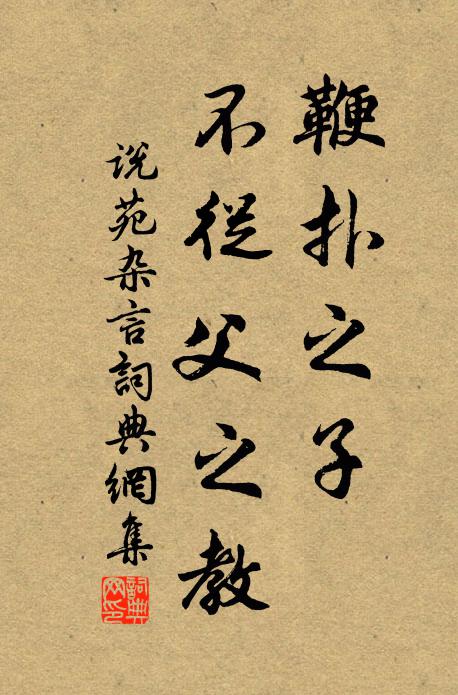 鞭扑之子
不從父之教
说苑杂言詞典網集
詞典
网印